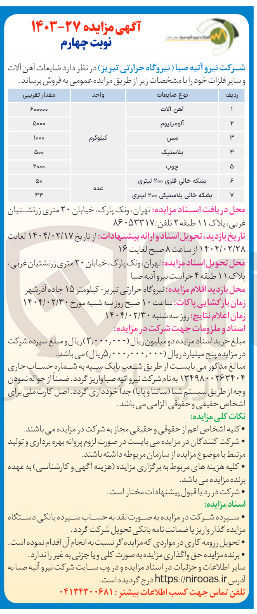 آگهی مزایده ۲۷-۱۴۰۳
نوبت چهارم
شرکت نیرو آتیه صبا (نیروگاه حرارتی تبریز) در نظر دارد ضایعات آهن آلات
و سایر فلزات خود را با مشخصات زیر از طریق مزایده عمومی به فروش برساند.
ردیف نوع ضایعات واحد مقدار تقریبی
۱ آهن آلات کیلوگرم ۶۰۰۰۰۰
۲ آلومینیوم ۵۰۰۰
۳ مس ۱۰۰۰
۴ پلاستیک ۵۰۰
۵ چوب ۲۰۰۰
۶ بشکه خالی فلزی ۲۰۰ لیتری عدد ۵۰
۷ بشکه خالی پلاستیکی ۲۰۰ لیتری
محل دریافت اسناد مزایده: تهران، ونک پارک، خیابان ۲۰ متری زرتشتیان
غربی، پلاک ۱۱ طبقه ۲ تلفن: ۸۶۰۵۳۳۱۷
تاریخ بازدید، تحویل اسناد و ارائه پیشنهادات: از تاریخ ۱۴۰۴/۰۲/۱۷ لغایت
۱۴۰۴/۰۲/۲۸ از ساعت ۸ صبح لغایت ۱۶
محل تحویل اسناد مزایده: تهران، ونک پارک، خیابان ۲۰ متری زرتشتیان غربی،
پلاک ۱۱ طبقه ۴ حراست نیرو آتیه صبا
محل بازدید اقلام مزایده: نیروگاه حرارتی تبریز- کیلومتر ۱۵ جاده آذرشهر
زمان بازگشایی پاکات: ساعت ۱۰ صبح روز سه شنبه مورخ ۱۴۰۴/۰۲/۳۰
زمان اعلام نتایج: روز سه شنبه ۱۴۰۴/۰۲/۳۰
اسناد و ملزومات جهت شرکت در مزایده:
مبلغ خرید اسناد مزایده دو میلیون ریال (۲,۰۰۰,۰۰۰ ریال) و مبلغ سپرده شرکت
در مزایده پنج میلیارد ریال (۵,۰۰۰,۰۰۰,۰۰۰ ریال) می باشد.
مبالغ مذکور می بایست از طریق شعب بانک سپه به شماره حساب جاری
به نام شرکت نیرو آتیه صبا واریز گردد. ضمناً از حواله نمودن
وجه از طریق سیستم شبا (ساتنا و پایا) جداً خودداری گردد. اصل کارت ملی برای
اشخاص حقیقی و حقوقی الزامی می باشد.
نکات کلی مزایده:
• کلیه اشخاص اعم از حقوقی و حقیقی مجاز به شرکت در مزایده می باشند.
• شرکت کنندگان در مزایده می بایست در صورت لزوم پروانه بهره برداری و تولید
مرتبط با موضوع مزایده از سازمان مربوطه داشته باشند.
• کلیه هزینه های مربوط به برگزاری مزایده (هزینه آگهی و کارشناسی) به عهده
برنده مزایده می باشد.
• شرکت در رد یا قبول پیشنهادات مختار است.
اسناد مزایده:
• سپرده شرکت در مزایده به صورت نقد به حساب سپرده بانکی دستگاه
مزایده گذار واریز یا ضمانت نامه بانکی تحویل شرکت گردد.
• تحویل رزومه کاری در مواردی که مزایده گر نسبت به انجام آن اقدام نموده است.
• برنده مزایده حق واگذاری مزایده به صورت کلی و یا جزئی به غیر را ندارد.
سایر اطلاعات و جزئیات در اسناد مزایده و در وب سایت شرکت نیرو آتیه صبا به
آدرس https://nirooas.ir درج گردیده است.
تلفن تماس جهت کسب اطلاعات بیشتر: ۰۴۱۳۴۳۰۰۶۸۱